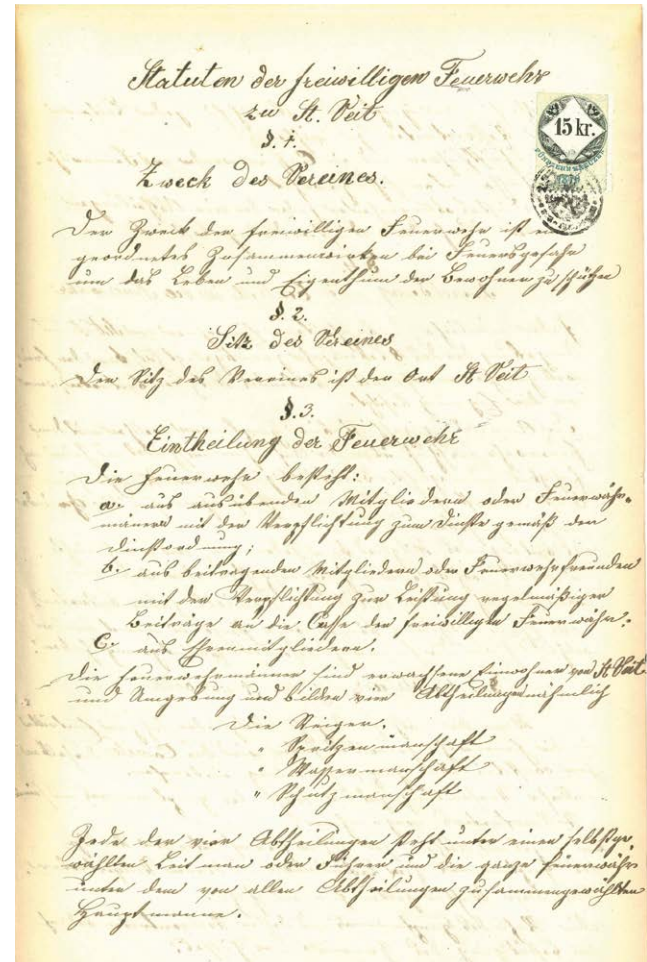 Statuten der freiwilligen Feuerwehr
zu St. Veit
15 kr.
§. 1.
Zweck des Vereines.
Der Zweck der freiwilligen Feuerwehr ist ein
geordnetes Zusammenwirken bei Feuersgefahr
um das Leben und Eigenthum der Bewohner zu schützen
§. 2.
Sitz des Vereines
Der Sitz des Vereines ist der Ort St Veit
§. 3.
Eintheilung der Feuerwehr
Die Feuerwehr besteht:
a. aus ausübenden Mitgliedern oder Feuerwehr-
männern mit der Verpflichtung zum Dienste gemäß der
Dienstordnung;
b. aus beitragenden Mitgliedern oder Feuerwehrfreunden
mit der Verpflichtung zur Leistung regelmäßiger
Beitrage an die Casse der freiwilligen Feuerwehr.
C. aus Ehrenmitgliedern.
Die Feuerwehrmänner sind erwachsene Einwohner von St Veit
und Umgebung und bilden vier Abtheilungen nähmlich
Die Steiger.
" Spritzenmanschaft
" Wassermanschaft
" Schutzmanschaft
Jede der vier Abtheilungen steht unter einen selbstge-
wählten Leitman oder Führer und die ganze Feuerwehr
unter dem von allen Abtheilungen zusammengewählten
Hauptmanne.